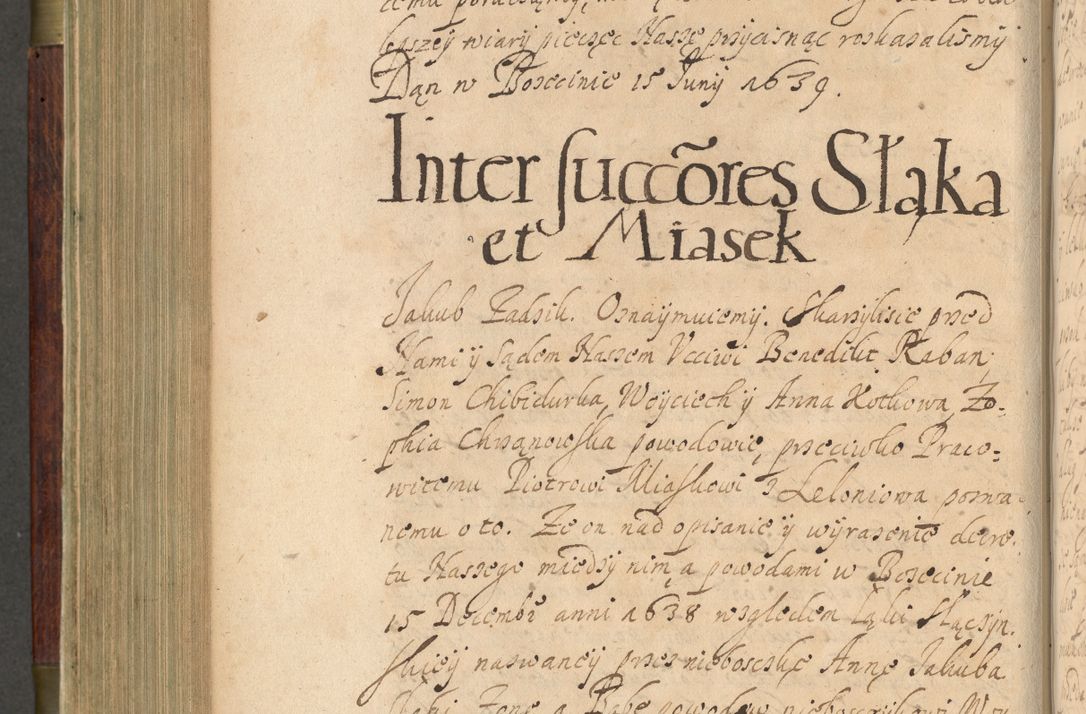 lepszey wiary pieczęć Naszę przycisnąć roskazalismy
Dąn w Bozecinie 15 Junij 1639.
Inter succões Słąka
et Miasek
Jakub Zadzik. Oznaÿmuiemÿ. Skarzÿlisie przed
Nami ÿ Sądem Naszem Vcciwi Benedikt Raban,
Simon Chibidurka, Woÿciech ÿ Anna Kotkowa, Zo=
phia Chrząnowska powodowie, przeciwko Praco=
witemu Piotrowi Miaskowi z Leloniowa pozwa=
nemu o to. Ze on nad opisanie ÿ wÿrazenie decre=
tu Naszego miedzÿ nim, a powodami w Bozecinie
15 Decembr anni 1638 względem Łąki Słączÿn=
skieÿ nazwaneÿ przez nieboszkę Annę Jakuba
Zonę a Babę powodow